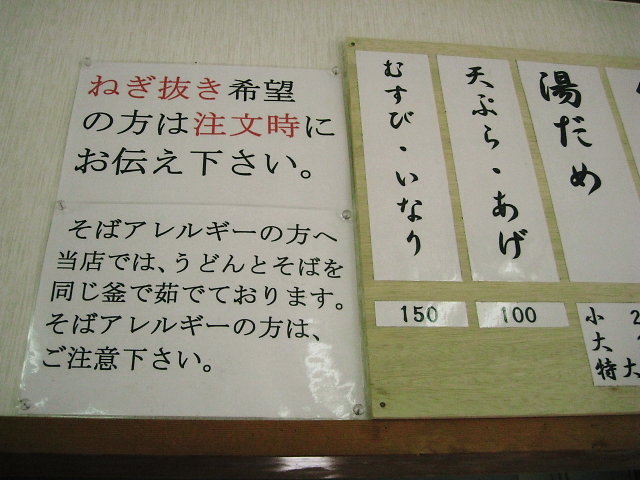 ねぎ抜き希望
の方は注文時に
お伝え下さい。
そばアレルギーの方へ
当店では、うどんとそばを
同じ釜で茹でております。
そばアレルギーの方は、
ご注意下さい。
むすび・いなり
150
天ぷら・あげ
100
湯だめ
小 2
大
特大